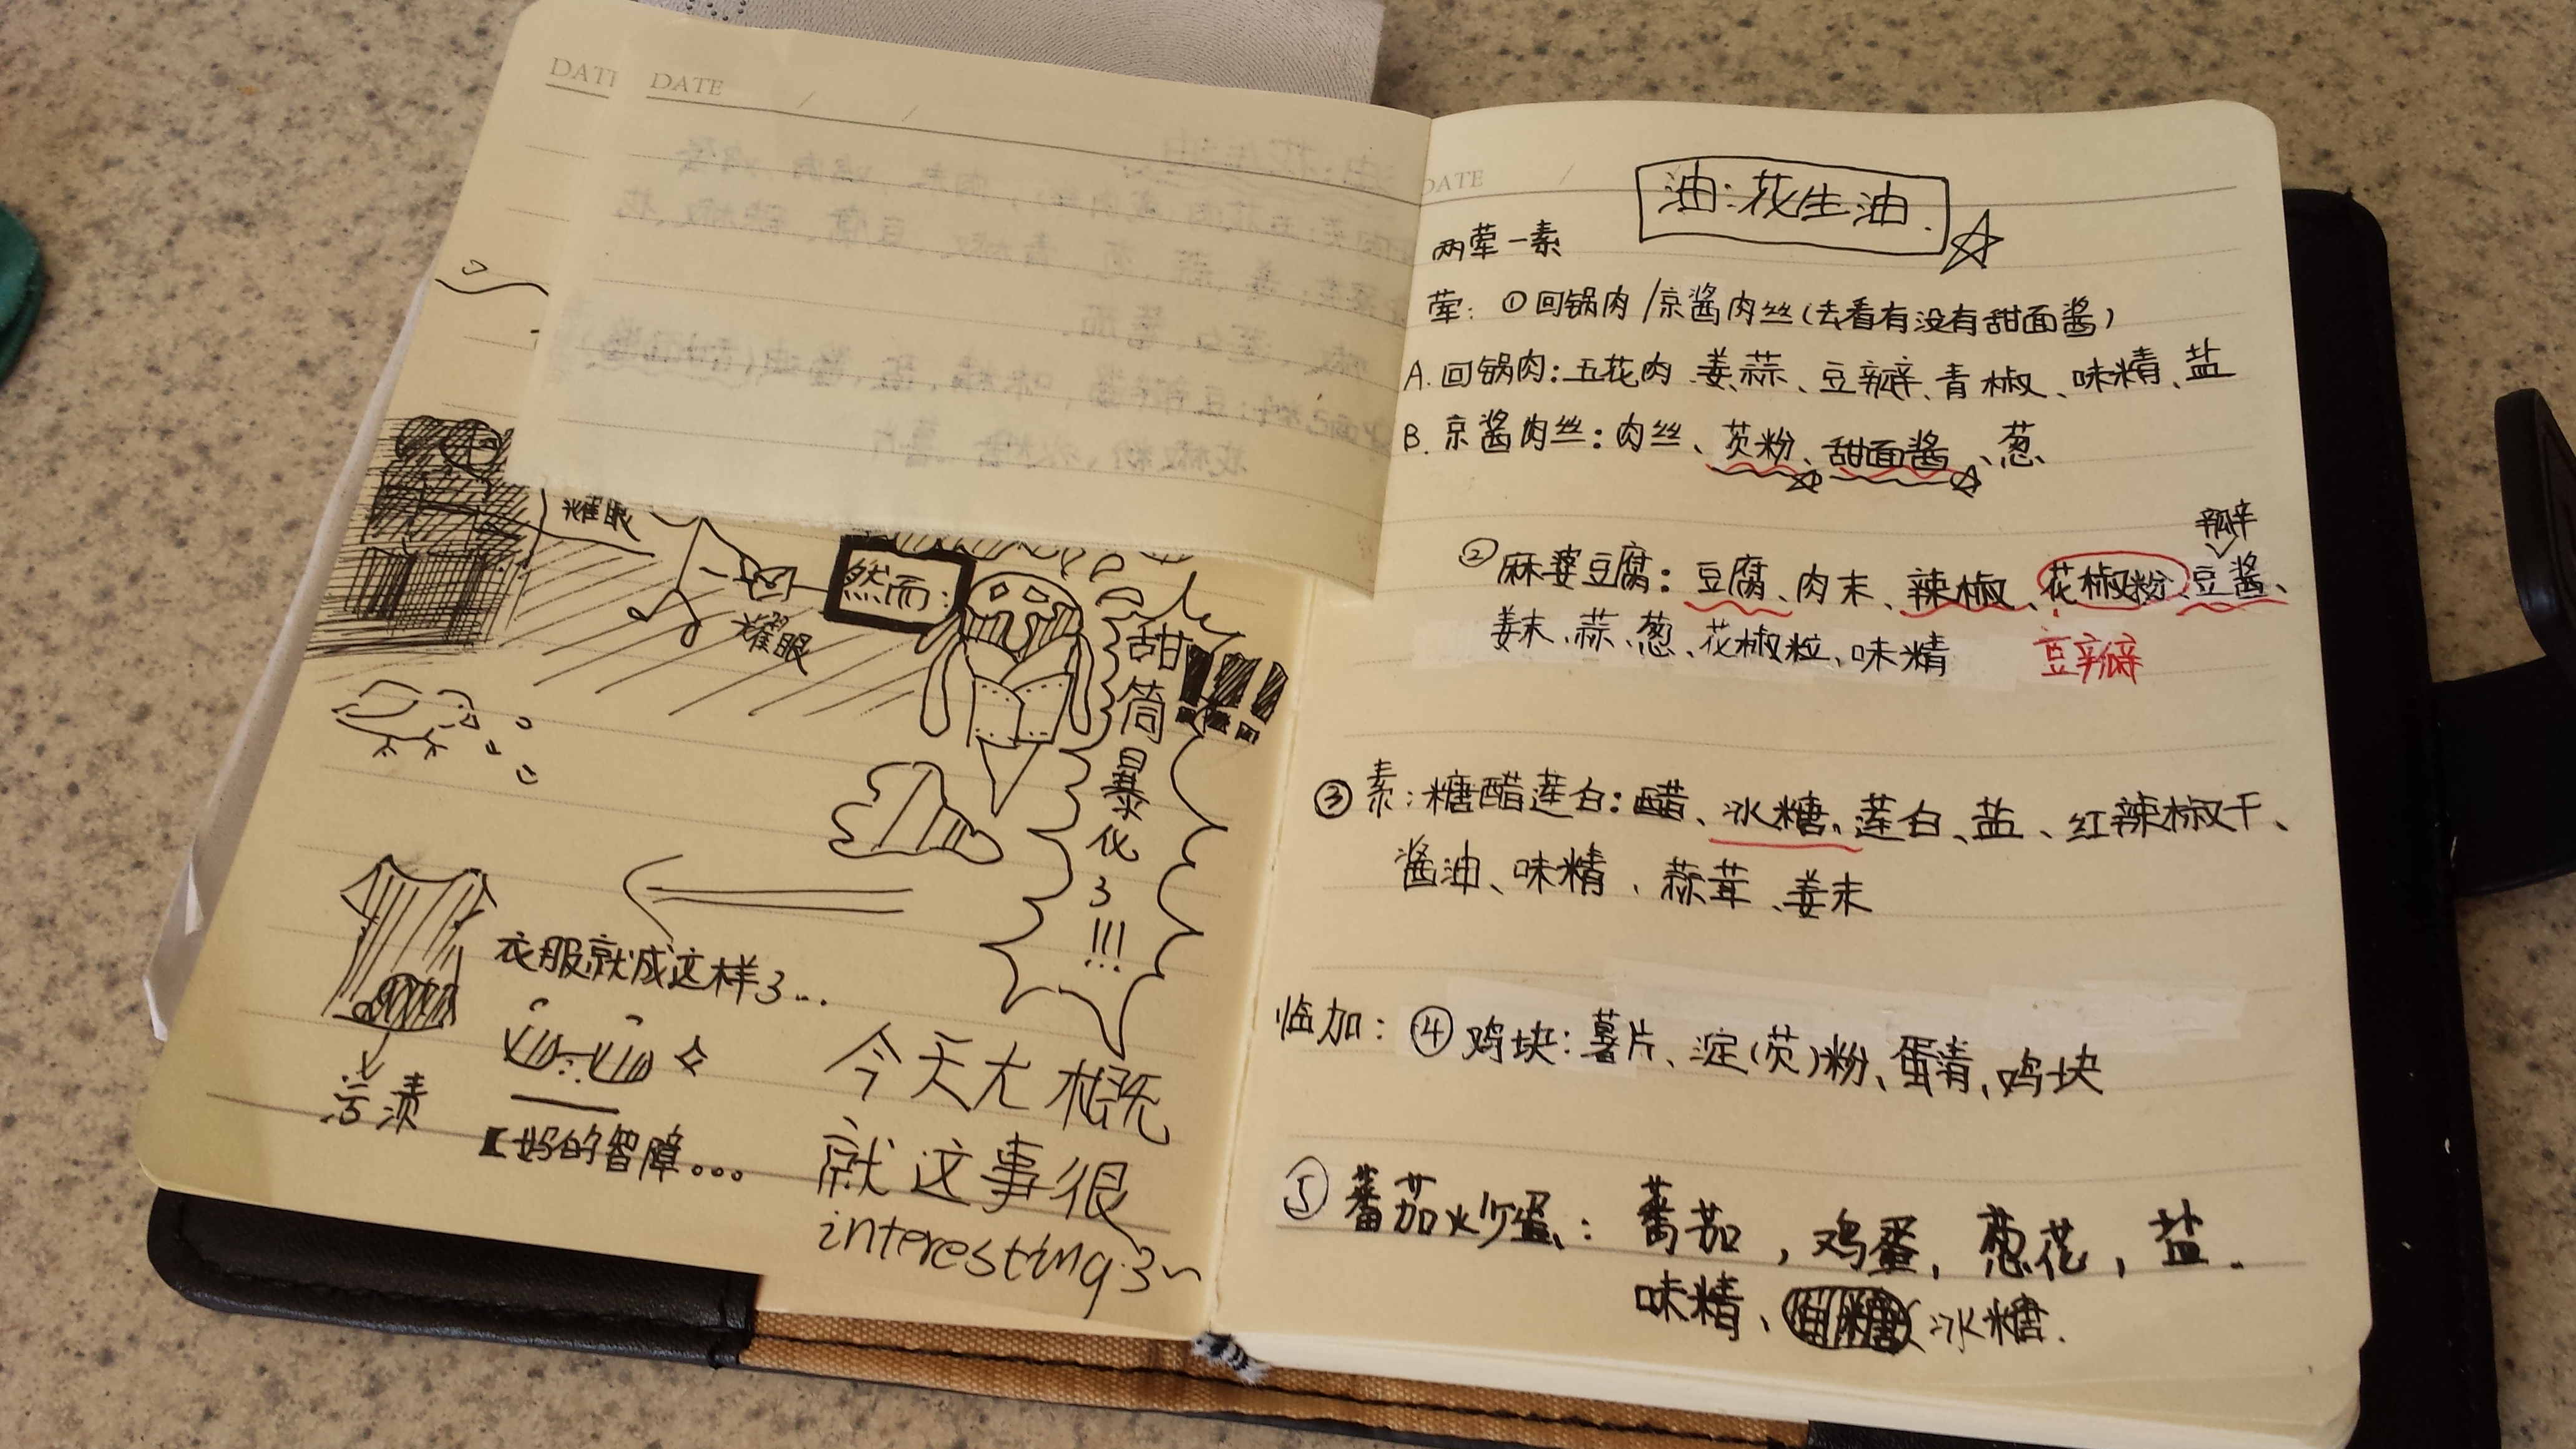 DATE
DATE
耀眼
然而:
耀眼
甜筒暴化了!!!
衣服就成这样了...
污渍
妈的智障。。。
今天大概
就这事很
interesting了~
DATE
油:花生油.
两荤一素
荤: ①回锅肉/京酱肉丝(去看有没有甜面酱)
A.回锅肉:五花肉 姜蒜、豆瓣、青椒、味精、盐
B.京酱肉丝:肉丝、芡粉、甜面酱、葱
瓣
②麻婆豆腐:豆腐、肉末、辣椒、花椒粉、豆酱、
姜末、蒜、葱、花椒粒、味精
豆瓣
③素:糖醋莲白:醋、冰糖、莲白、盐、红辣椒干、
酱油、味精、蒜茸、姜末
临加:④鸡块:薯片、淀(芡)粉、蛋清、鸡块
⑤蕃茄炒蛋:蕃茄,鸡蛋,葱花,盐.
味精、冰糖.